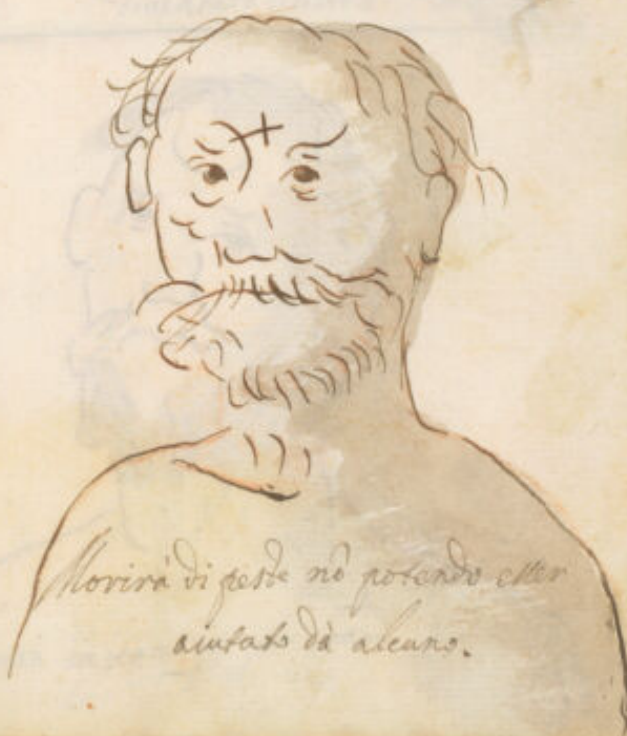 Morirà di peste nõ potendo esser
aiutato dà alcuno.